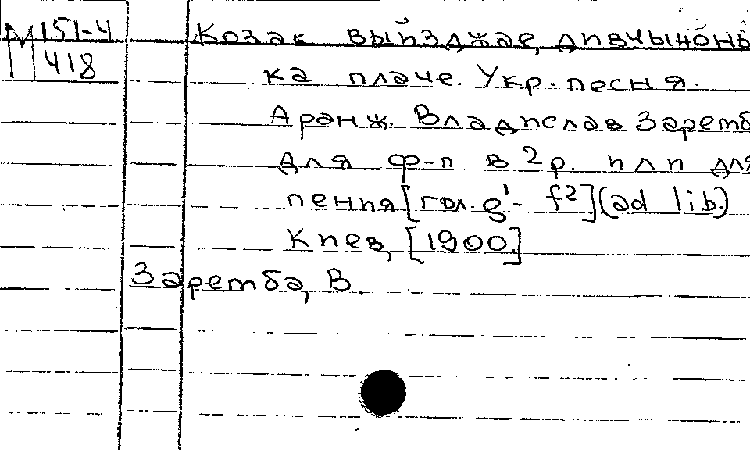 М 151-4
418
Козак выйзджае, дивчыионь
ка плаче. Укр. песня.
Аранж. Владислав Заремб
для ф-п в 2 р. или для
пения [гол. g¹- f²] (ad lib.)
Киев, [1900.]
Заремба, В.